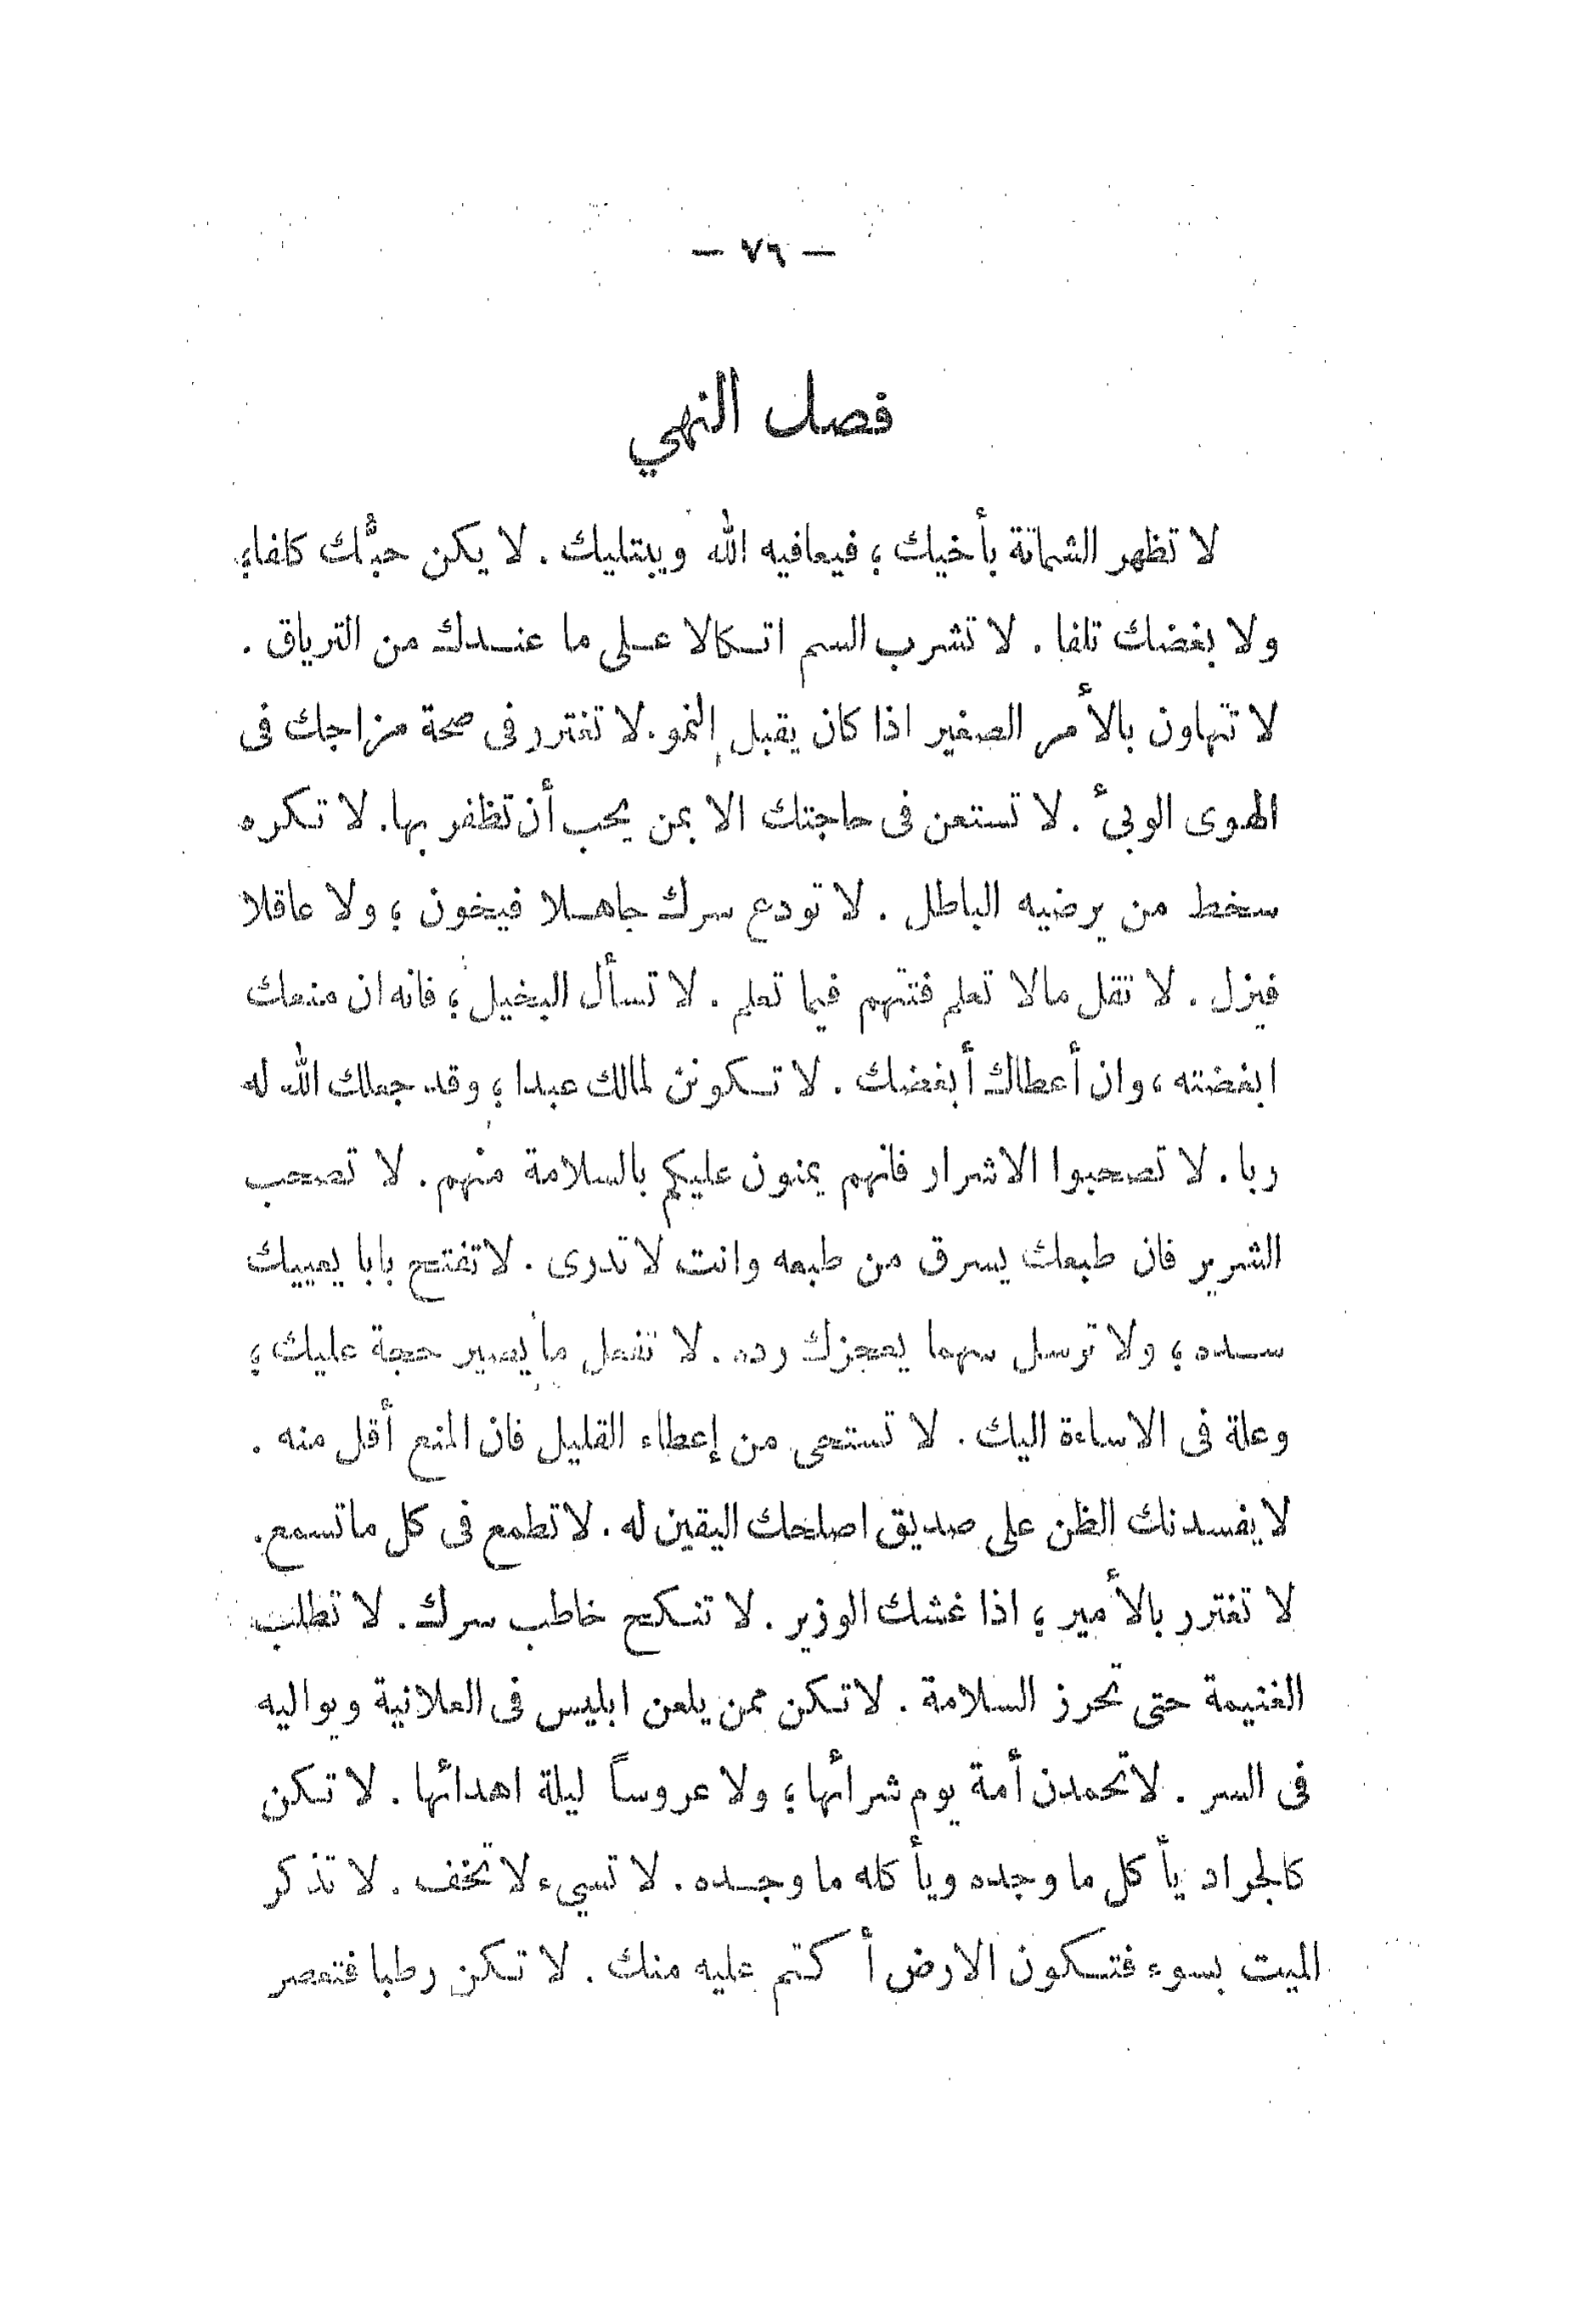 — ٧٦ —
فصل النهي
لا تظهر الشماتة بأخيك ؛ فيعافيه الله ويبتليك . لا يكن حبُّك كلفا ؛
ولا بغضك تلفا . لا تشرب السم اتكالا على ما عندك من الترياق .
لا تتهاون بالأمر الصغير اذا كان يقبل النمو . لا تغترر فى صحة مزاجك فى
الهوى الوبئ . لا تستعن فى حاجتك الا بمن يحب أن تظفر بها . لا تكره
سخط من يرضيه الباطل . لا تودع سرك جاهلا فيخون ؛ ولا عاقلا
فيزل . لا تقل مالا تعلم فتتهم فيما تعلم . لا تسأل البخيل ؛ فانه ان منعك
ابغضته ، وان أعطاك أبغضك . لا تكونن لمالك عبدا ؛ وقد جعلك الله له
ربا . لا تصحبوا الاشرار فانهم يمنون عليكم بالسلامة منهم . لا تصحب
الشرير فان طبعك يسرق من طبعه وانت لا تدرى . لا تفتح بابا يعييك
سده ؛ ولا ترسل سهما يعجزك رده . لا تفعل ما يصير حجة عليك ؛
وعلة فى الاساءة اليك . لا تستحى من إعطاء القليل فان المنع أقل منه .
لا يفسدنك الظن على صديق اصلحك اليقين له . لا تطمع فى كل ما تسمع .
لا تغترر بالأمير ؛ اذا غشك الوزير . لا تنكح خاطب سرك . لا تطلب
الغنيمة حتى تحرز السلامة . لا تكن ممن يلعن ابليس فى العلانية ويواليه
فى السر . لا تحمدن أمة يوم شرائها ؛ ولا عروساً ليلة اهدائها . لا تكن
كالجراد يأكل ما وجده ويأكله ما وجده . لا تسيء لا تخف . لا تذكر
الميت بسوء فتكون الارض أكتم عليه منك . لا تكن رطبا فتعصر